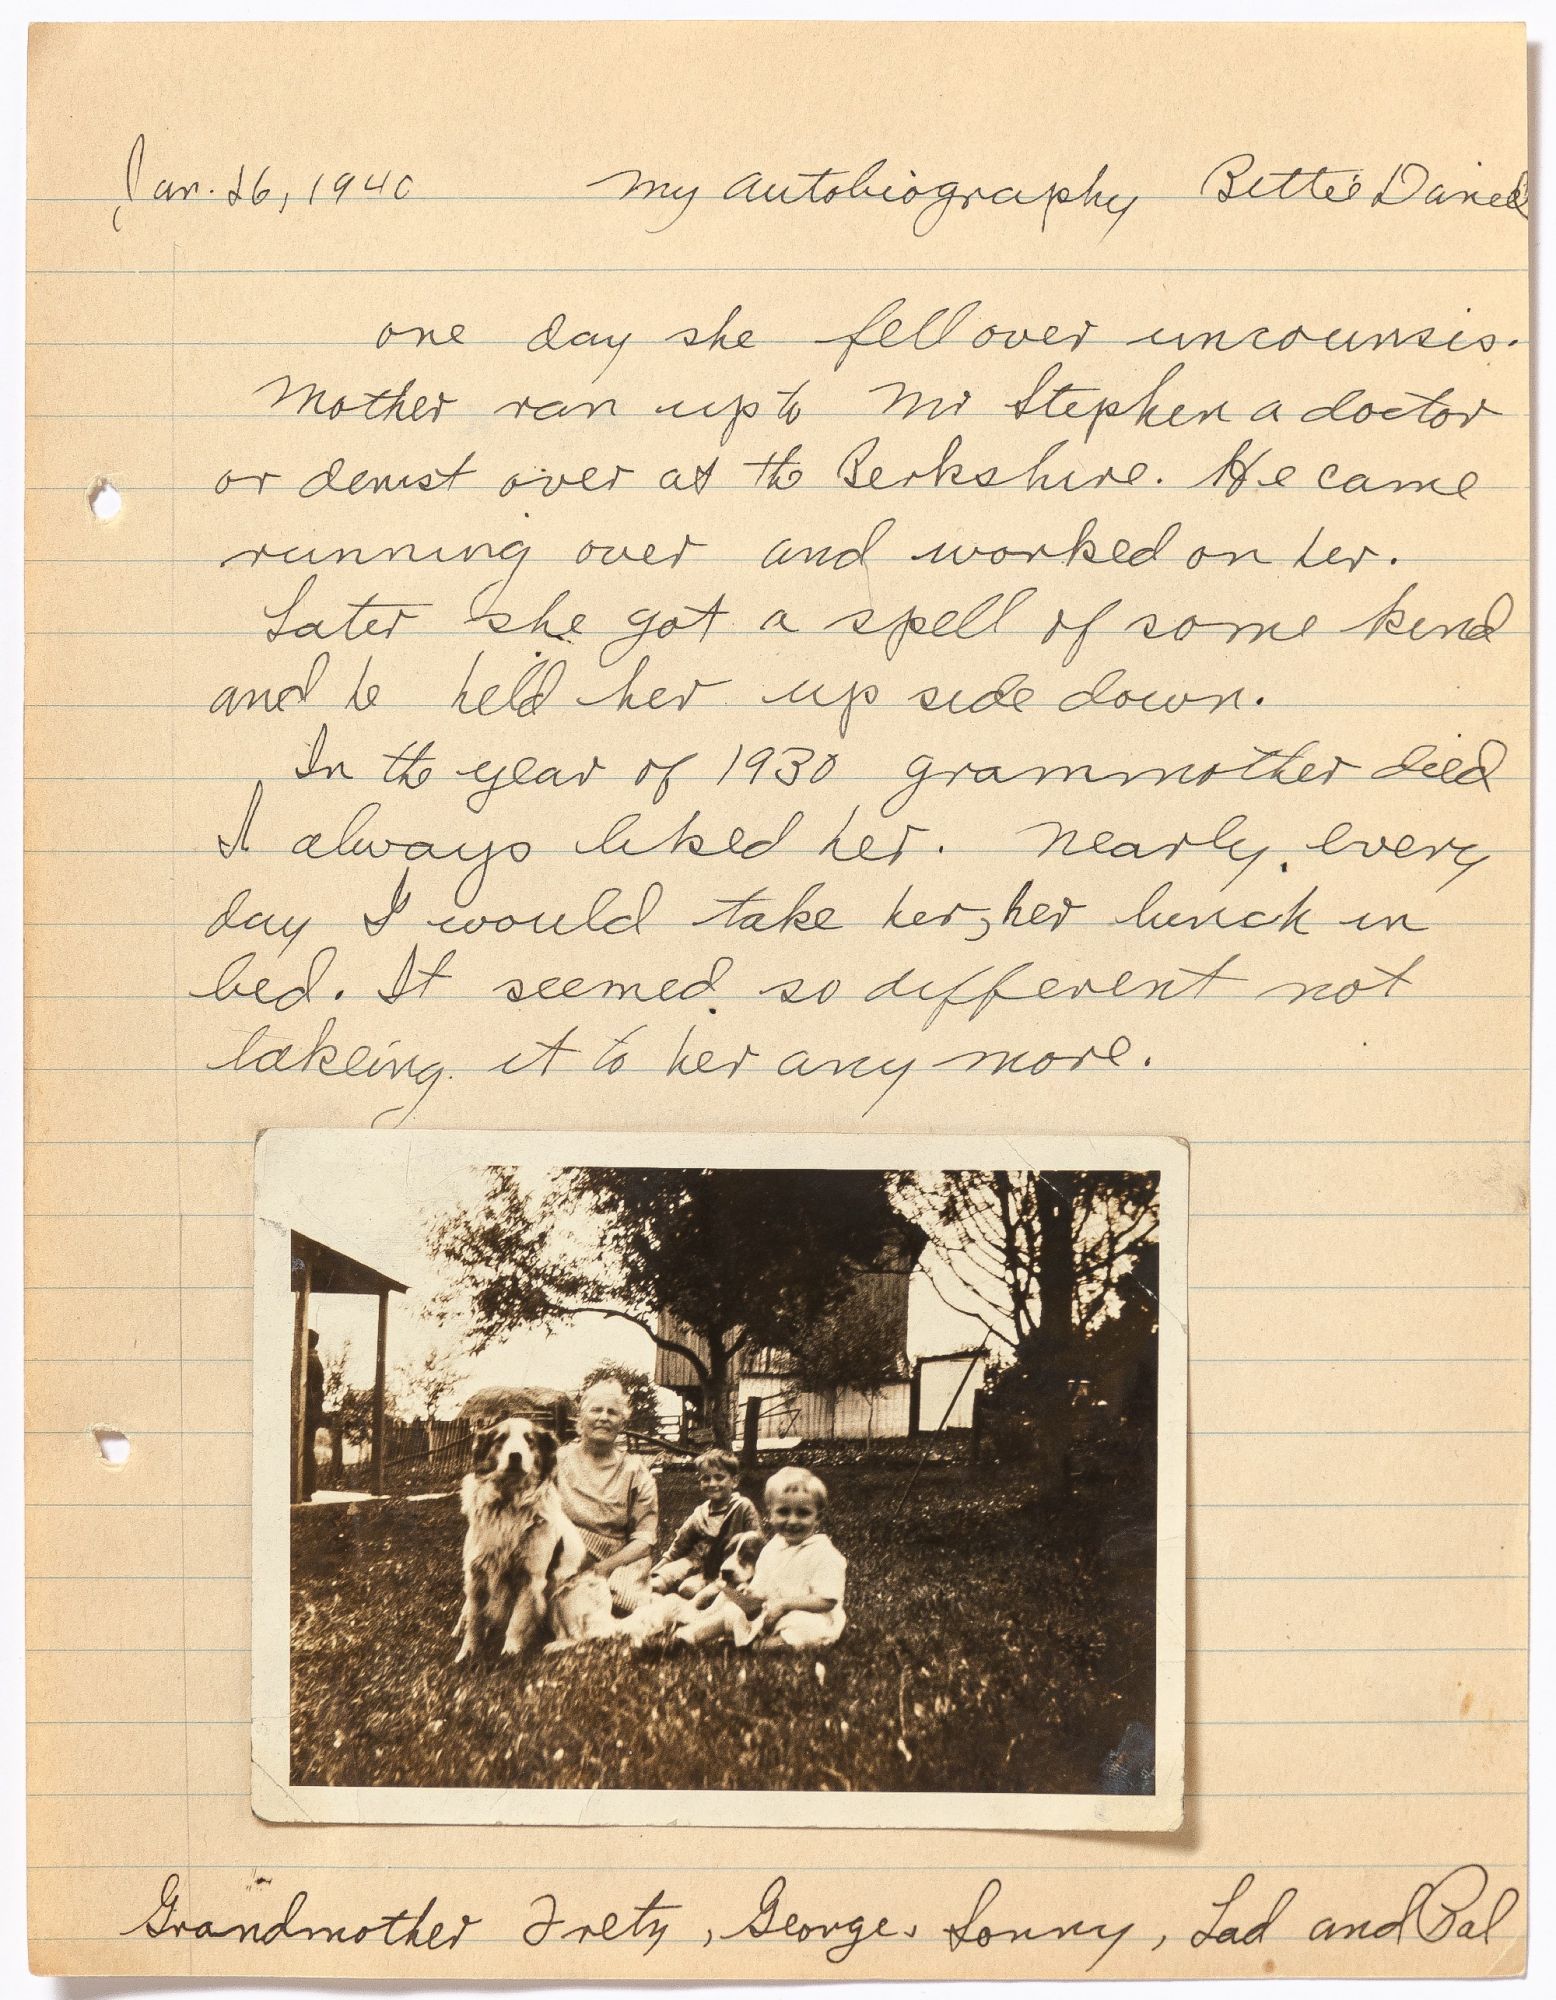 Jan. 26, 1940 My Autobiography Bettie Daniel
one day she fell over uncounsis.
Mother ran up to Mr Stephen a doctor
or denist over at the Berkshire. He came
running over and worked on her.
Later she got a spell of some kind
and he held her up side down.
In the year of 1930 grammother died
I always liked her. Nearly every
day I would take her, her lunch in
bed. It seemed so different not
takeing it to her any more.
Grandmother Frety, George, Sonny, Lad and Pal